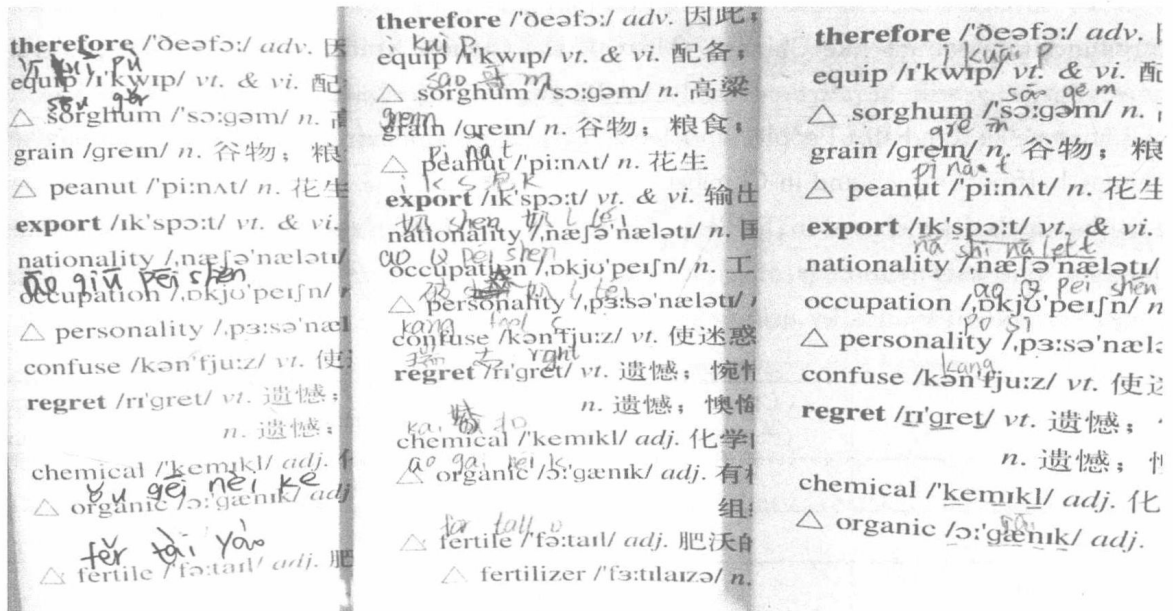 therefore /'ðeəfɔ:/ adv. 因
yī kuī pǔ
equip /ɪ'kwɪp/ vt. & vi. 配
△ sorghum /'sɔ:gəm/ n. 高
grain /greɪn/ n. 谷物；粮
△ peanut /'pi:nʌt/ n. 花生
export /ɪk'spɔ:t/ vt. & vi.
nationality /ˌnæʃə'nælətɪ/
āo giū pēi shēn
occupation /ˌɒkjʊ'peɪʃn/
△ personality /ˌpɜ:sə'næl
confuse /kən'fju:z/ vt. 使
regret /rɪ'gret/ vt. 遗憾；
n. 遗憾；
chemical /'kemɪkl/ adj.
gēi nèi kē
△ organic /ɔ:'gænɪk/ adj
fěr tài yào
△ fertile /'fə:taɪl/ adj. 肥
therefore /'ðeəfɔ:/ adv. 因此；
i kuì p
equip /ɪ'kwɪp/ vt. & vi. 配备；
△ sorghum /'sɔ:gəm/ n. 高粱
grain /greɪn/ n. 谷物；粮食；
pi na t
△ peanut /'pi:nʌt/ n. 花生
export /ɪk'spɔ:t/ vt. & vi. 输出
nationality /ˌnæʃə'nælətɪ/ n. 国
ao Q pei shen
occupation /ˌɒkjʊ'peɪʃn/ n. 工
△ personality /ˌpɜ:sə'nælətɪ/
kang
confuse /kən'fju:z/ vt. 使迷惑
regret /rɪ'gret/ vt. 遗憾；惋惜
n. 遗憾；懊悔
chemical /'kemɪkl/ adj. 化学
ao gai nei k
△ organic /ɔ:'gænɪk/ adj. 有机
组
△ fertile /'fə:taɪl/ adj. 肥沃的
△ fertilizer /'fɜ:tɪlaɪzə/ n.
therefore /'ðeəfɔ:/ adv.
ì kuāi p
equip /ɪ'kwɪp/ vt. & vi. 配
sāo gem
△ sorghum /'sɔ:gəm/ n.
gre in
grain /greɪn/ n. 谷物；粮
pì nà t
△ peanut /'pi:nʌt/ n. 花生
export /ɪk'spɔ:t/ vt. & vi.
nationality /ˌnæʃə'nælətɪ/
ao Q pei shēn
occupation /ˌɒkjʊ'peɪʃn/ n
po si
△ personality /ˌpɜ:sə'nælə
kang
confuse /kən'fju:z/ vt. 使迷
regret /rɪ'gret/ vt. 遗憾；
n. 遗憾；
chemical /'kemɪkl/ adj. 化
△ organic /ɔ:'gænɪk/ adj.